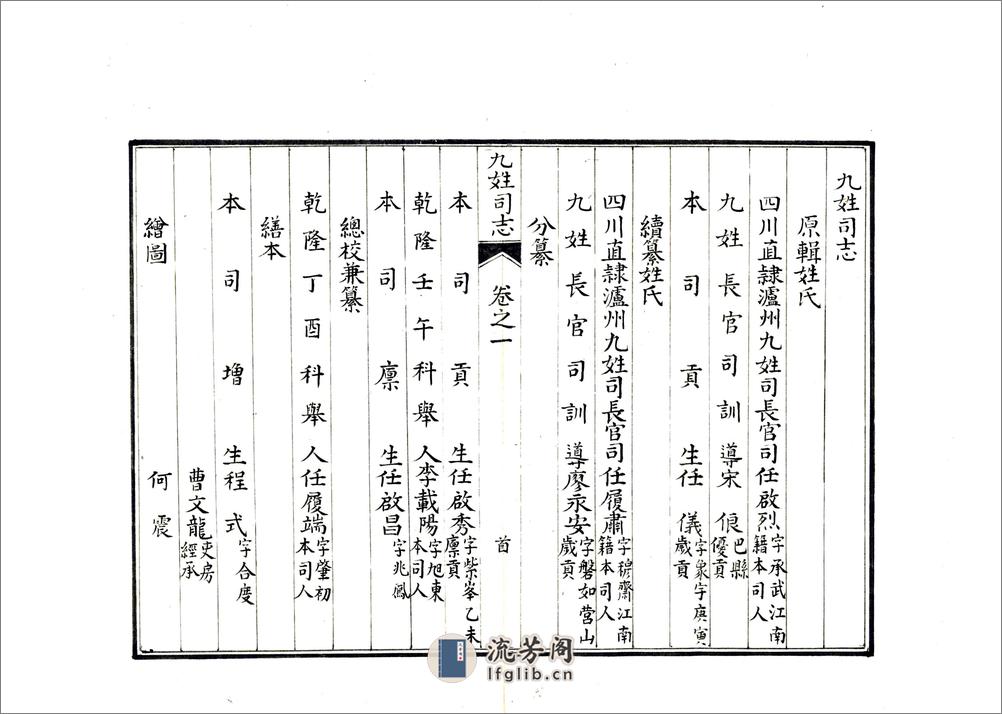 九姓司志
原輯姓氏
四川直隷瀘州九姓司長官司任啟烈字承武江南籍本司人
九姓長官司訓導宋俍巴縣優貢
本司貢生任儀字象字庚寅歲貢
續纂姓氏
四川直隷瀘州九姓司長官司任履肅字穆齋江南籍本司人
九姓長官司訓導廖永安字磐如營山歲貢
分纂
九姓司志 卷之一 首
本司貢生任啟秀字紫峯乙未廪貢
乾隆壬午科舉人李載陽字旭東本司人
本司廪生任啟昌字兆鳳
總校兼纂
乾隆丁酉科舉人任履端字肇初本司人
繕本
本司增生程式字合度
曹文龍吏房經承
繪圖
何震
流芳阁
lfglib.cn